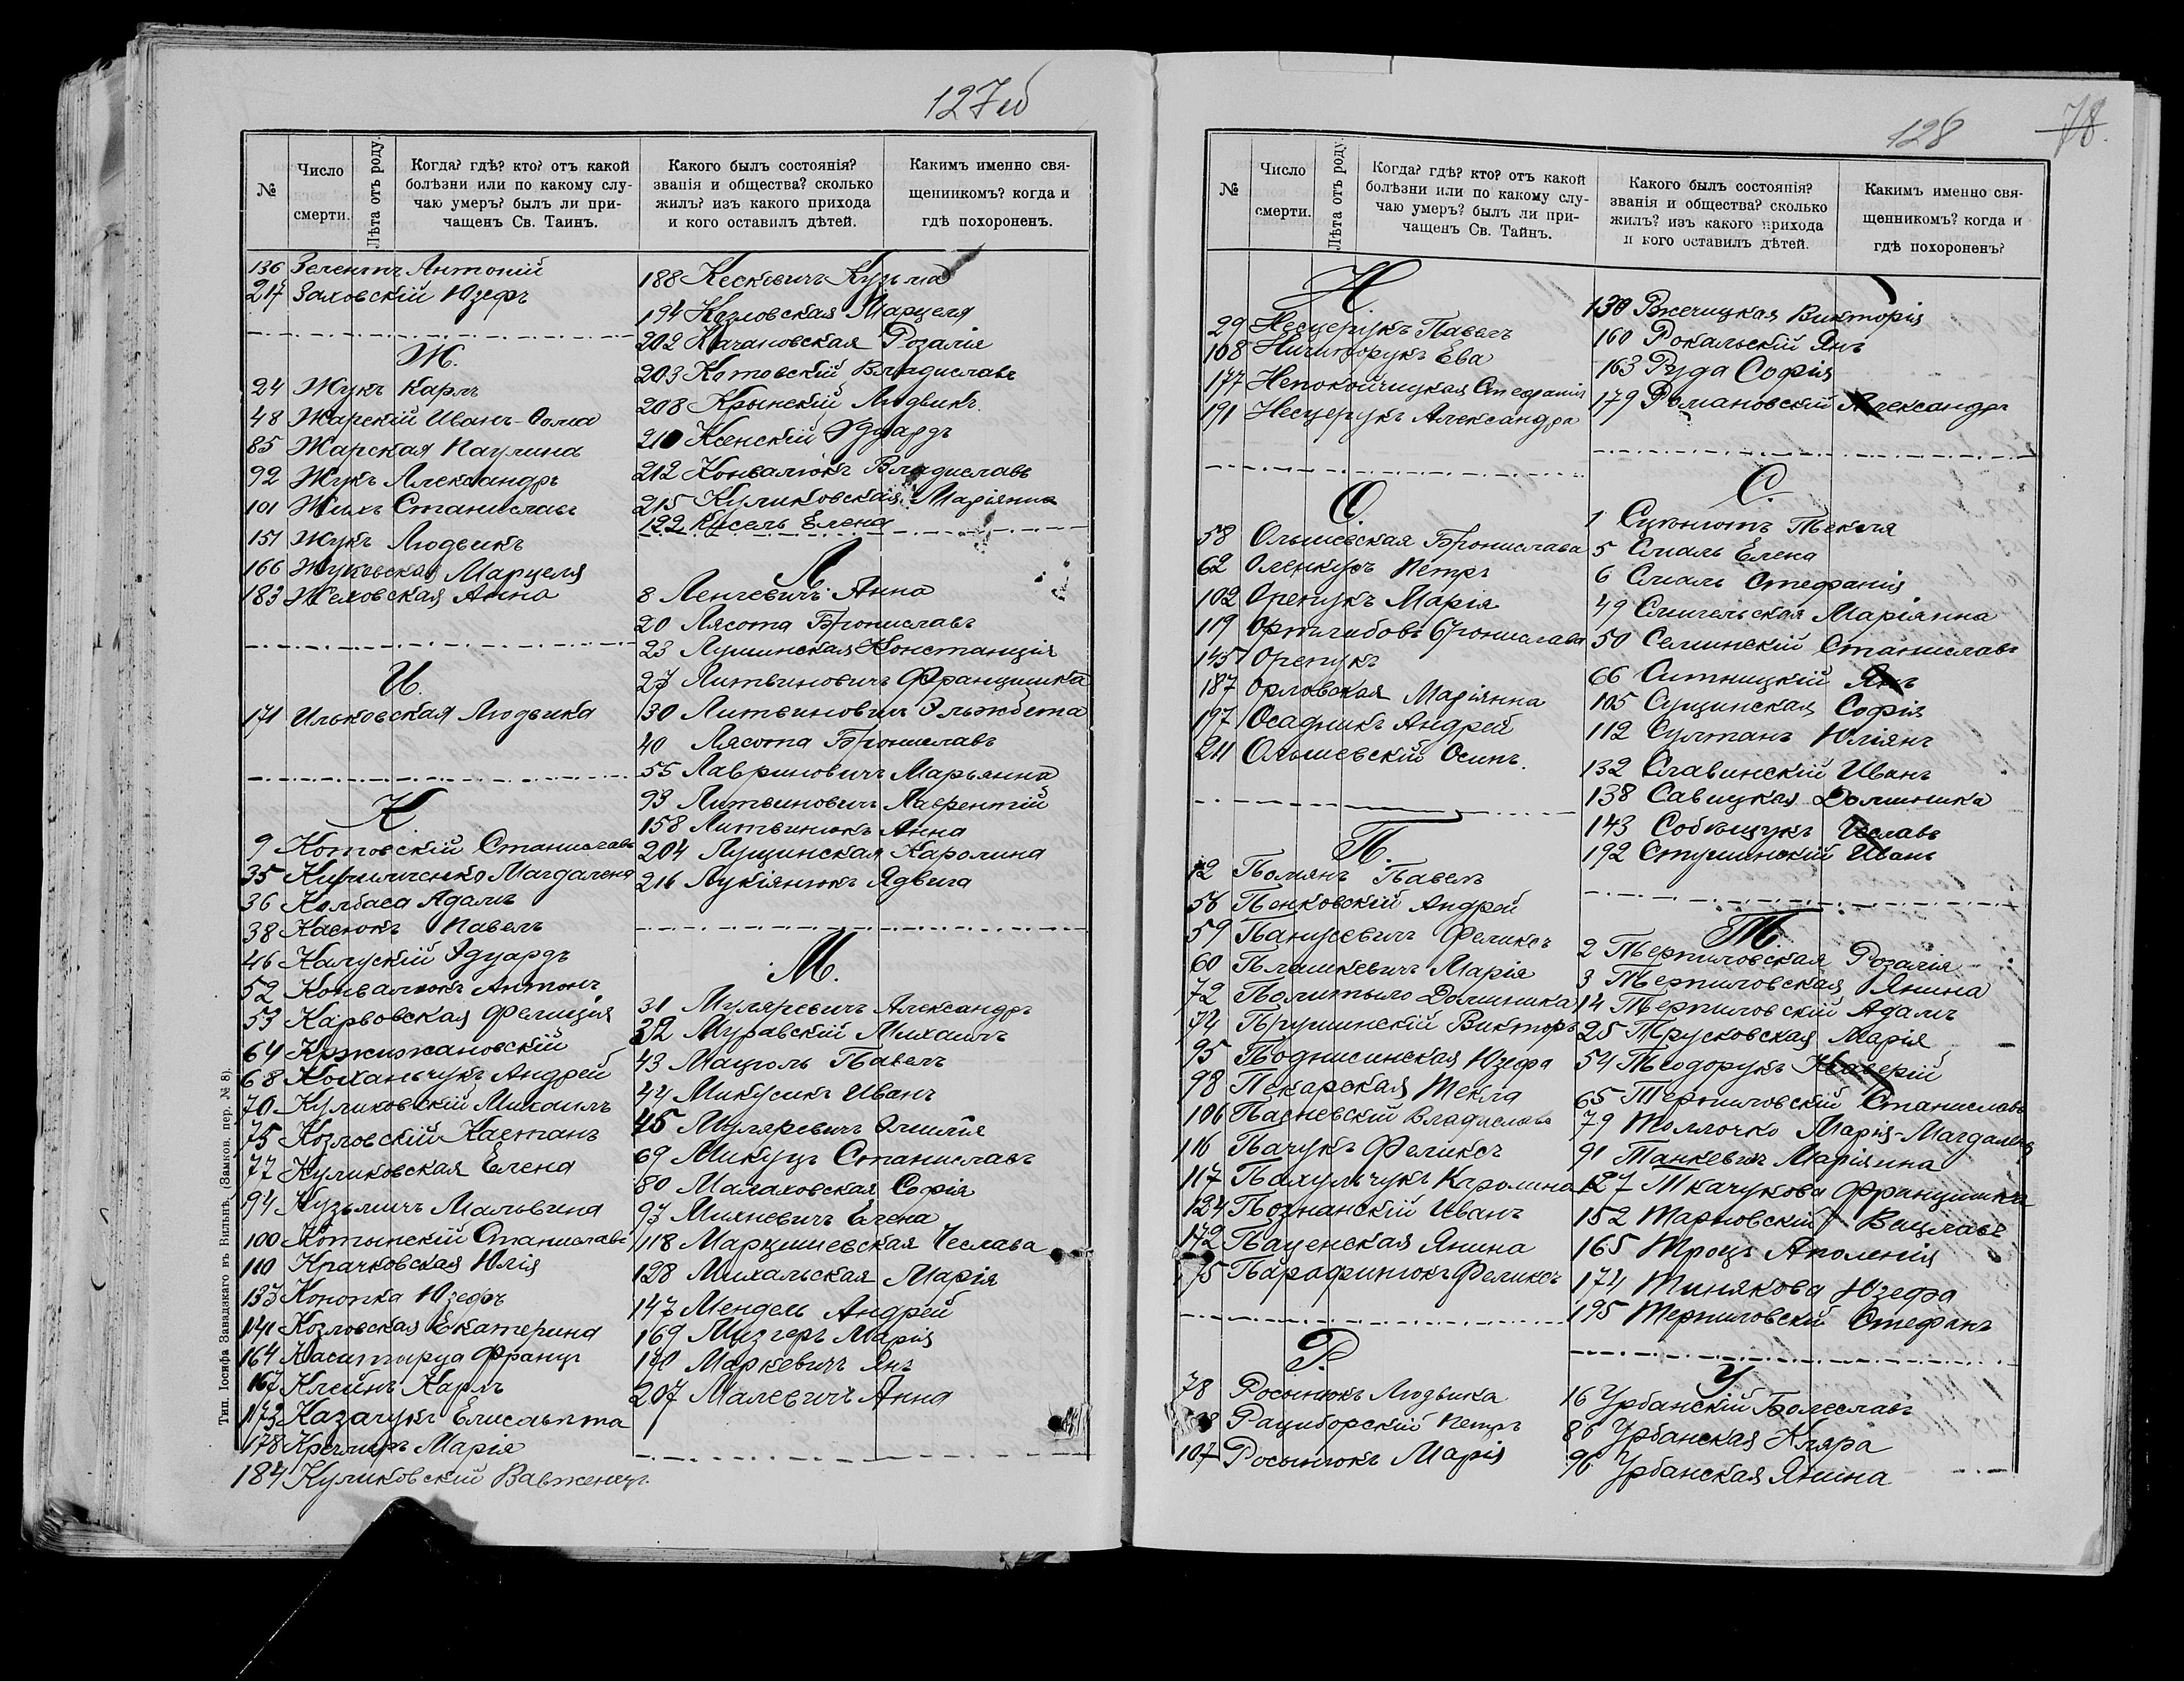 127об
№
Число смерти.
Лѣта отъ роду.
Когда? гдѣ? кто? отъ какой
болѣзни или по какому слу-
чаю умеръ? былъ ли при-
чащенъ Св. Таинъ.
Какого былъ состоянія?
званія и общества? сколько
жилъ? изъ какого прихода
и кого оставилъ дѣтей.
Какимъ именно свя-
щенникомъ? когда и
гдѣ похороненъ.
136 Антоній
217 Заховскій Юзефъ
Ж.
24 Жукъ Карлъ
48 Жарскій Иванъ-Фома
85 Жарская Паулина
92 Жукъ Александръ
101 Жукъ Станиславъ
151 Жукъ Людвикъ
166 Марцеля
183 Жеховская Анна
И.
171 Ильковская Людвика
К
9 Котовскій Станиславъ
35 Магдалена
36 Колбаса Адамъ
38 Касюкъ Павелъ
46 Калускій Эдуардъ
52 Конвалюкъ Антонъ
53 Карвовская Фелиція
64 Кржижановскій
68 Коханьчукъ Андрей
70 Куликовскій Михаилъ
75 Козловскій Каетанъ
77 Куликовская Елена
94 Кузьмичъ Мальвина
100 Котынскій Станиславъ
110 Крачковская Юлія
133 Конопка Юзефъ
141 Козловская Екатерина
164 Францъ
167 Клейнъ Карлъ
173 Казачукъ Елисавета
178 Кремеръ Марія
184 Куликовскій Вавженецъ.
188 Кескевичъ Кузьма
194 Козловская Марцеля
202 Качановская Розалія
203 Котовскій Владиславъ
208 Крынскій Людвикъ.
210 Ксенскій Эдуардъ
212 Конвалюкъ Владиславъ
215 Куликовская Маріянна
122 Кисель Елена
Л
8 Ленчевичъ Анна
20 Лясота Брониславъ
23 Лушинская Констанція
27 Литвиновичъ Францишка
30 Литвиновичъ Эльжбета
40 Лясота Брониславъ
55 Лавриновичъ Марьянна
93 Литвиновичъ Лаврентій
158 Литвинюкъ Анна
204 Лущинская Каролина
216 Лукіянюкъ Ядвига
М.
31 Муляревичъ Александръ
32 Муравскій Михаилъ
43 Мацполь Павелъ
44 Микусикъ Иванъ
45 Муляревичъ Эмилія
69 Микуцъ Станиславъ
80 Малаховская Софія
97 Михневичъ Елена
118 Марцишевская Чеслава
128 Михальская Марія
147 Мендель Андрей
169 Мизгеръ Марія
170 Маркевичъ Янъ
207 Малевичъ Анна
Тип. Іосифа Завадзкаго въ Вильнѣ. (Замков. пер. № 8).
128
78.
№
Число смерти.
Лѣта отъ роду.
Когда? гдѣ? кто? отъ какой
болѣзни или по какому слу-
чаю умеръ? былъ ли при-
чащенъ Св. Тайнъ.
Какого былъ состоянія?
званія и общества? сколько
жилъ? изъ какого прихода
и кого оставилъ дѣтей.
Какимъ именно свя-
щенникомъ? когда и
гдѣ похороненъ?
Н.
29 Несцерукъ Павелъ
108 Ничипорукъ Ева
177 Непокойчицкая Стефанія
191 Несцерукъ Александра
О.
58 Ольшевская Бронислава
62 Петръ
102 Орепукъ Марія
119 Бронислава
145 Орепукъ
187 Орловская Маріянна
197 Осадникъ Андрей
211 Ольшевскій Осипъ.
П.
12 Помянъ Павелъ
56 Пенковскій Андрей
59 Панусевичъ Феликсъ
60 Плашкевичъ Марія
72 Политыло Доминика
74 Прушинскій Викторъ
95 Поднисинская Юзефа
98 Пекарская Текла
106 Пасневскій Владиславъ
116 Пачукъ Феликсъ
117 Пахульчукъ Каролина
124 Познанскій Иванъ
172 Паценская Янина
175 Парафинюкъ Феликсъ
Р.
78 Росинюкъ Людвика
Рациборскій Петръ
107 Росинюкъ Марія
130 Ржечицкая Викторія
160 Рокальскій Янъ
163 Руда Софія
179 Романовскій Александръ
С.
1 Текля
5 Смаль Елена
6 Смаль Стефанія
49 Смигельская Маріянна
50 Селинскій Станиславъ
66 Ситницкій Янъ
105 Сущинская Софія
112 Султанъ Юліянъ
132 Славинскій Иванъ
138 Савицкая Доминика
143 Собещукъ Чеславъ
192 Стушинскій Иванъ
Т.
2 Терпиловская Розалія
3 Терпиловская Янина
14 Терпиловскій Адамъ
25 Трусковская Марія
54 Теодорукъ Ксаверій
65 Терпиловскій Станиславъ
79 Толлочко Марія-Магдалена
91 Танкевичъ Маріянна
127 Ткачукова Францишка
152 Тарновскій Вацлавъ
165 Троцъ Аполенія
174 Тинякова Юзефа
195 Терпиловскій Стефанъ
У
16 Урбанскій Болеславъ
86 Урбанская Кляра
96 Урбанская Янина